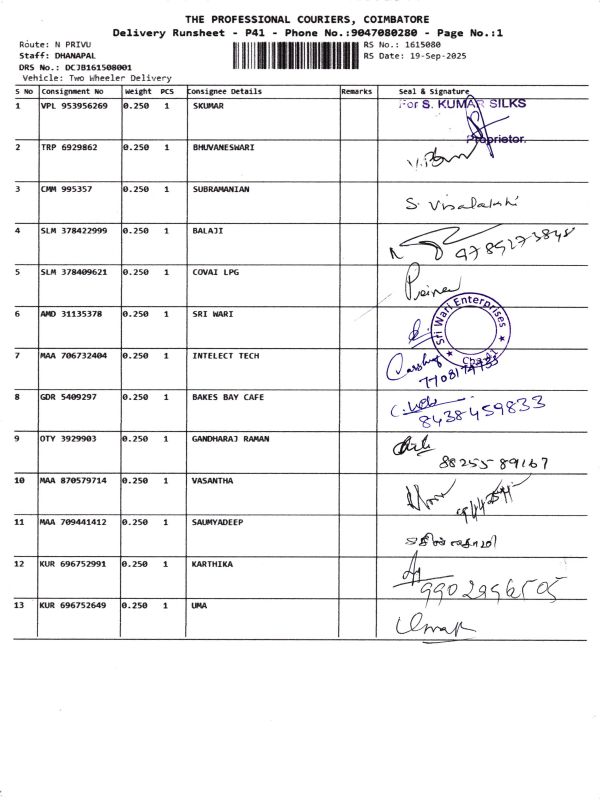 THE PROFESSIONAL COURIERS, COIMBATORE
Delivery Runsheet - P41 - Phone No.:9047080280 - Page No.:1
Route: N PRIVU RS No.: 1615080
Staff: DHANAPAL RS Date: 19-Sep-2025
DRS No.: DCJB161508001
Vehicle: Two Wheeler Delivery
S No Consignment No Weight PCS Consignee Details Remarks Seal & Signature
1 VPL 953956269 0.250 1 SKUMAR For S. KUMAR SILKS
Proprietor.
2 TRP 6929862 0.250 1 BHUVANESWARI
3 CMM 995357 0.250 1 SUBRAMANIAN S. Visalakshi
4 SLM 378422999 0.250 1 BALAJI 9789273848
5 SLM 378409621 0.250 1 COVAI LPG
6 AMD 31135378 0.250 1 SRI WARI Sri Wari Enterprises
7 MAA 706732404 0.250 1 INTELECT TECH
8 GDR 5409297 0.250 1 BAKES BAY CAFE 8438459833
9 OTY 3929903 0.250 1 GANDHARAJ RAMAN 8825589167
10 MAA 870579714 0.250 1 VASANTHA
11 MAA 709441412 0.250 1 SAUMYADEEP
12 KUR 696752991 0.250 1 KARTHIKA
13 KUR 696752649 0.250 1 UMA